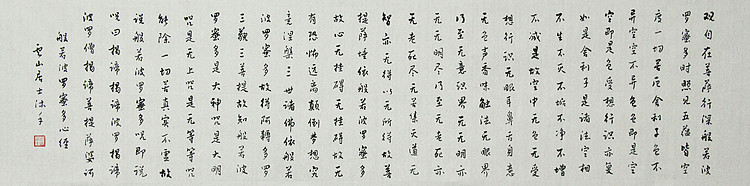 观自在菩萨行深般若波
罗蜜多时照见五蕴皆空
度一切苦厄舍利子色不
异空空不异色色即是空
空即是色受想行识亦复
如是舍利子是诸法空相
不生不灭不垢不净不增
不减是故空中无色无受
想行识无眼耳鼻舌身意
无色声香味触法无眼界
乃至无意识界无无明亦
无无明尽乃至无老死亦
无老死尽无苦集灭道无
智亦无得以无所得故菩
提萨埵依般若波罗蜜多
故心无挂碍无挂碍故无
有恐怖远离颠倒梦想究
竟涅槃三世诸佛依般若
波罗蜜多故得阿耨多罗
三藐三菩提故知般若波
罗蜜多是大神咒是大明
咒是无上咒是无等等咒
能除一切苦真实不虚故
说般若波罗蜜多咒即说
咒曰揭谛揭谛波罗揭谛
波罗僧揭谛菩提萨婆诃
般若波罗蜜多心经
山居士